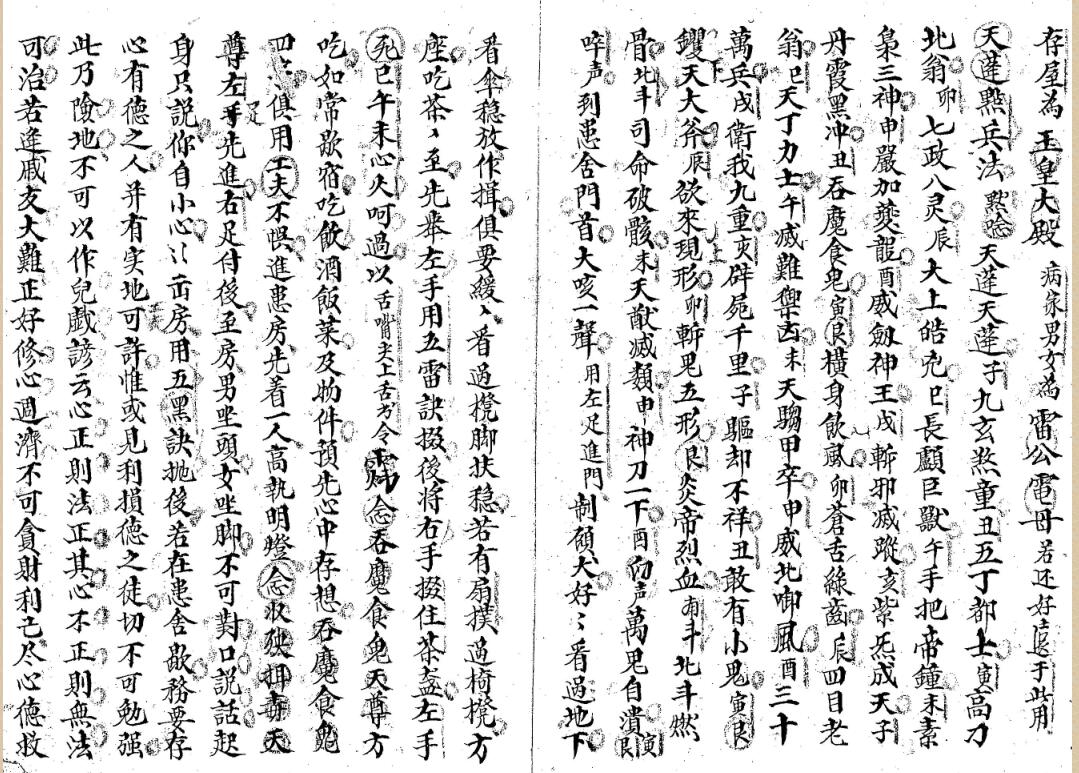 存屋為玉皇大殿 病家男女為雷公電母 若还好遠于此用
天蓬點兵法 默念 天蓬天蓬子九玄煞童丑五丁都士寅高刀
北翁卯七政八灵辰太上皓兇巳長顱巨獸午手把帝鐘未素
梟三神申嚴加夔龍酉威劍神王戌斬邪滅蹤亥紫炁成天子
丹霞黑冲丑吞魔食鬼寅艮橫身飲風卯蒼舌綠齒辰四目老
翁巳天丁力士午滅難禦凶未天騶甲卒申威北啣風酉三十
萬兵戌衛我九重亥辟屍千里子驅却不祥丑敢有小鬼寅艮
钁天大斧辰欲來現形卯斬鬼五形艮炎帝烈血南斗北斗燃
骨北斗司命破骸未天猷滅類申神刀一下酉 声萬鬼自潰寅艮
啐声到患舍門首大咳一聲 用左足進門 制額大好〻看過地下
看伞穏放作揖俱要緩〻看過櫈脚扶穏若有扇撲過椅櫈方
座吃茶〻至先举左手用五雷訣掇後將右手掇住茶盏左手
死巳午未心火呵過以舌嘴尖上舌方令 念吞魔食鬼天尊方
吃如常歇宿吃飲酒飯菜及物件預先心中存想吞魔食鬼
四 俱用工夫不悞進患房先着一人高執明燈念收 天
尊左手足先進右足付後至房男坐頭女坐脚不可對口説話起
身只説你自小心〻出房用五黑訣抛後若在患舍歇務要存
心有德之人并有实地可許惟或見利損德之徒切不可勉强
此乃險地不可以作兒戲諺云心正則法正其心不正則無法
可治若逢戚友大難正好修心週濟不可貪財利己尽心德救